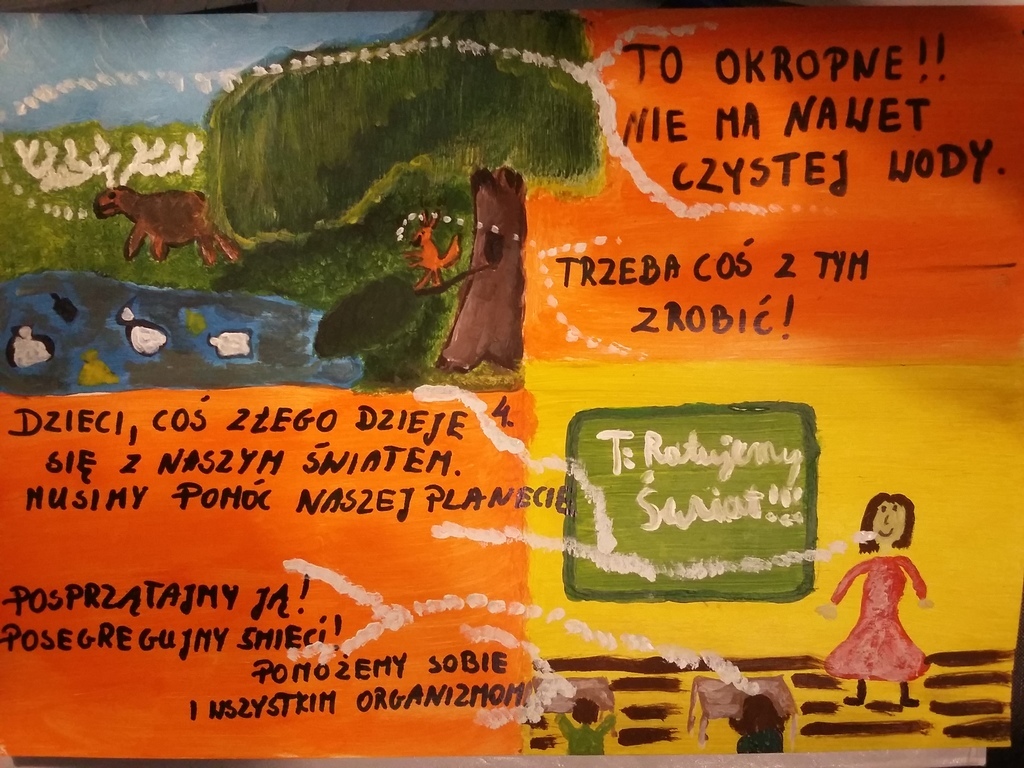 TO OKROPNE!!
NIE MA NAWET
CZYSTEJ WODY.
TRZEBA COŚ Z TYM
ZROBIĆ!
DZIECI, COŚ ZŁEGO DZIEJE
SIĘ Z NASZYM ŚWIATEM.
MUSIMY POMÓC NASZEJ PLANECIE
4.
T: Ratujemy
Świat!!!
POSPRZĄTAJMY JĄ!
POSEGREGUJMY ŚMIECI!
POMOŻEMY SOBIE
I WSZYSTKIM ORGANIZMOM